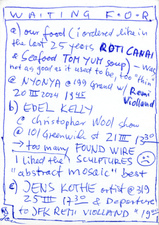 WAITING FOR
a) our food (i ordered like in
the last 25 years ROTI CANAI
& Seafood TOM YUM soup) - was
not as good as it used to be, too "thin"
@ NYONYA @ 199 Grand w/ Remi
20 III 2024 1945 Violland
b) EDEL KELLY
@ christopher Wool show
@ 101 Greenwich st 21 III 1730
→ too many FOUND WIRE
I liked the SCULPTURES
"abstract mosaic" best
c) JENS KOTHE artist @ 319
25 III 1730 & Departure
to JFK REMI VIOLLAND